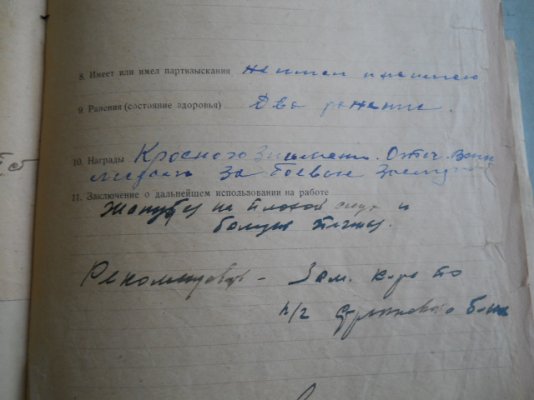 8. Имеет или имел партвзыскания не имел и не имею
9. Ранения (состояние здоровья) Два ранение.
10. Награды Красного Знамени. Отеч. Войн
медаль за боевые заслуги
11. Заключение о дальнейшем использовании на работе
на плохой слух и
Рекомендовать – Зам. по
п/г стрелкового бат